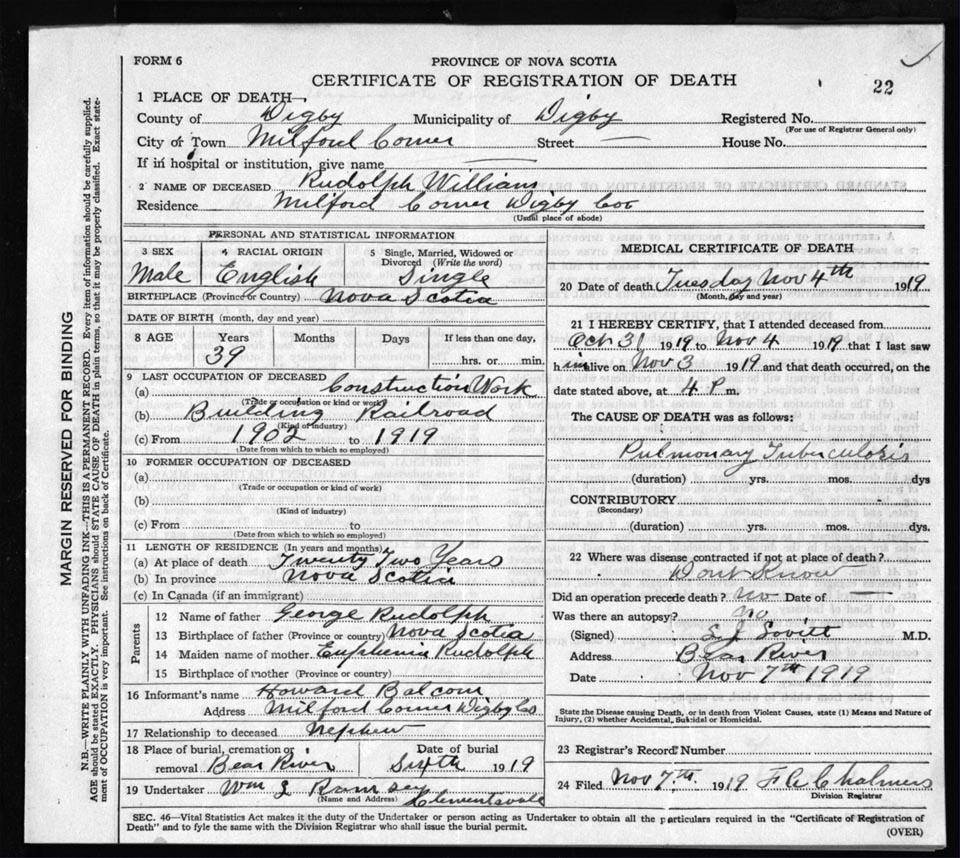 FORM 6
PROVINCE OF NOVA SCOTIA
CERTIFICATE OF REGISTRATION OF DEATH
22
1 PLACE OF DEATH—
County of Digby Municipality of Digby Registered No.
(For use of Registrar General only)
City or Town Milford Corner Street — House No.
If in hospital or institution, give name —
2 NAME OF DECEASED Rudolph William
Residence Milford Corner Digby Co
(Usual place of abode)
PERSONAL AND STATISTICAL INFORMATION
3 SEX 4 RACIAL ORIGIN 5 Single, Married, Widowed or Divorced (Write the word)
Male English Single
BIRTHPLACE (Province or Country) Nova Scotia
DATE OF BIRTH (month, day and year)
8 AGE Years Months Days If less than one day,
39 hrs. or min.
9 LAST OCCUPATION OF DECEASED
(a) Construction Work
(Trade or occupation or kind or work)
(b) Building Railroad
(Kind of industry)
(c) From 1902 to 1919
(Date from which to which so employed)
10 FORMER OCCUPATION OF DECEASED
(a)
(Trade or occupation or kind of work)
(b)
(Kind of industry)
(c) From to
(Date from which to which so employed)
11 LENGTH OF RESIDENCE (In years and months)
(a) At place of death Twenty Two Years
(b) In province Nova Scotia
(c) In Canada (if an immigrant)
Parents
12 Name of father George Rudolph
13 Birthplace of father (Province or country) Nova Scotia
14 Maiden name of mother Euphemia Rudolph
15 Birthplace of mother (Province or country)
16 Informant's name Howard Balcom
Address Milford Corner Digby Co
17 Relationship to deceased Nephew
18 Place of burial, cremation or removal Bear River Date of burial Sixth 1919
19 Undertaker Wm Ramsey Clementsvale
(Name and Address)
MEDICAL CERTIFICATE OF DEATH
20 Date of death Tuesday Nov 4th 1919
(Month, day and year)
21 I HEREBY CERTIFY, that I attended deceased from
Oct 31 1919 to Nov 4 1919 that I last saw
him alive on Nov 3 1919 and that death occurred, on the
date stated above, at 4 P. m.
The CAUSE OF DEATH was as follows:
Pulmonary Tuberculosis
(duration) yrs. mos. dys
CONTRIBUTORY
(Secondary)
(duration) yrs. mos. dys.
22 Where was disease contracted if not at place of death?
Dont Know
Did an operation precede death? no Date of —
Was there an autopsy? No
(Signed) Lovitt M.D.
Address Bear River
Date Nov 7th 1919
State the Disease causing Death, or in death from Violent Causes, state (1) Means and Nature of
Injury, (2) whether Accidental, Suicidal or Homicidal.
23 Registrar's Record Number
24 Filed Nov 7th. 1919 Chalmers
Division Registrar
SEC. 46—Vital Statistics Act makes it the duty of the Undertaker or person acting as Undertaker to obtain all the particulars required in the "Certificate of Registration of
Death" and to fyle the same with the Division Registrar who shall issue the burial permit.
(OVER)
MARGIN RESERVED FOR BINDING
N.B.—WRITE PLAINLY WITH UNFADING INK—THIS IS A PERMANENT RECORD. Every item of information should be carefully supplied.
AGE should be stated EXACTLY. PHYSICIANS should STATE CAUSE OF DEATH in plain terms, so that it may be properly classified. Exact state-
ment of OCCUPATION is very important. See instructions on back of Certificate.